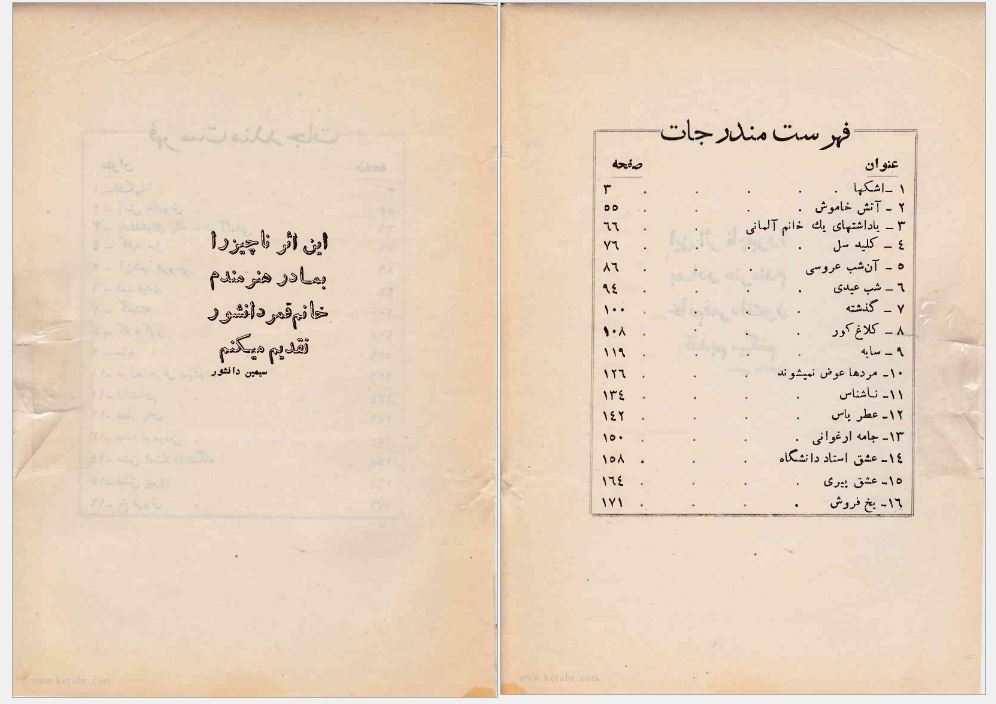 فهرست مندرجات
عنوان صفحه
۱ ـ اشکها . . . . . ۳
۲ ـ آتش خاموش . . . . ۵۵
۳ ـ یاداشتهای یك خانم آلمانی . . ۶۶
۴ ـ کلید سل . . . . ۷۶
۵ ـ آن‌شب عروسی . . . . ۸۶
۶ ـ شب عیدی . . . . ۹۴
۷ ـ گذشته . . . . ۱۰۰
۸ ـ کلاغ کور . . . . ۱۰۸
۹ ـ سایه . . . . ۱۱۹
۱۰ـ مردها عوض نمیشوند . . . ۱۲۶
۱۱ـ ناشناس . . . . ۱۳۴
۱۲ـ عطر یاس . . . . ۱۴۲
۱۳ـ جامه ارغوانی . . . . ۱۵۰
۱۴ـ عشق استاد دانشگاه . . . ۱۵۸
۱۵ـ عشق پیری . . . . ۱۶۴
۱۶ـ یخ فروش . . . . ۱۷۱
www.ketabe.com
این اثر ناچیز را
بمادر هنرمندم
خانم قمر دانشور
تقدیم میکنم
سیمین دانشور